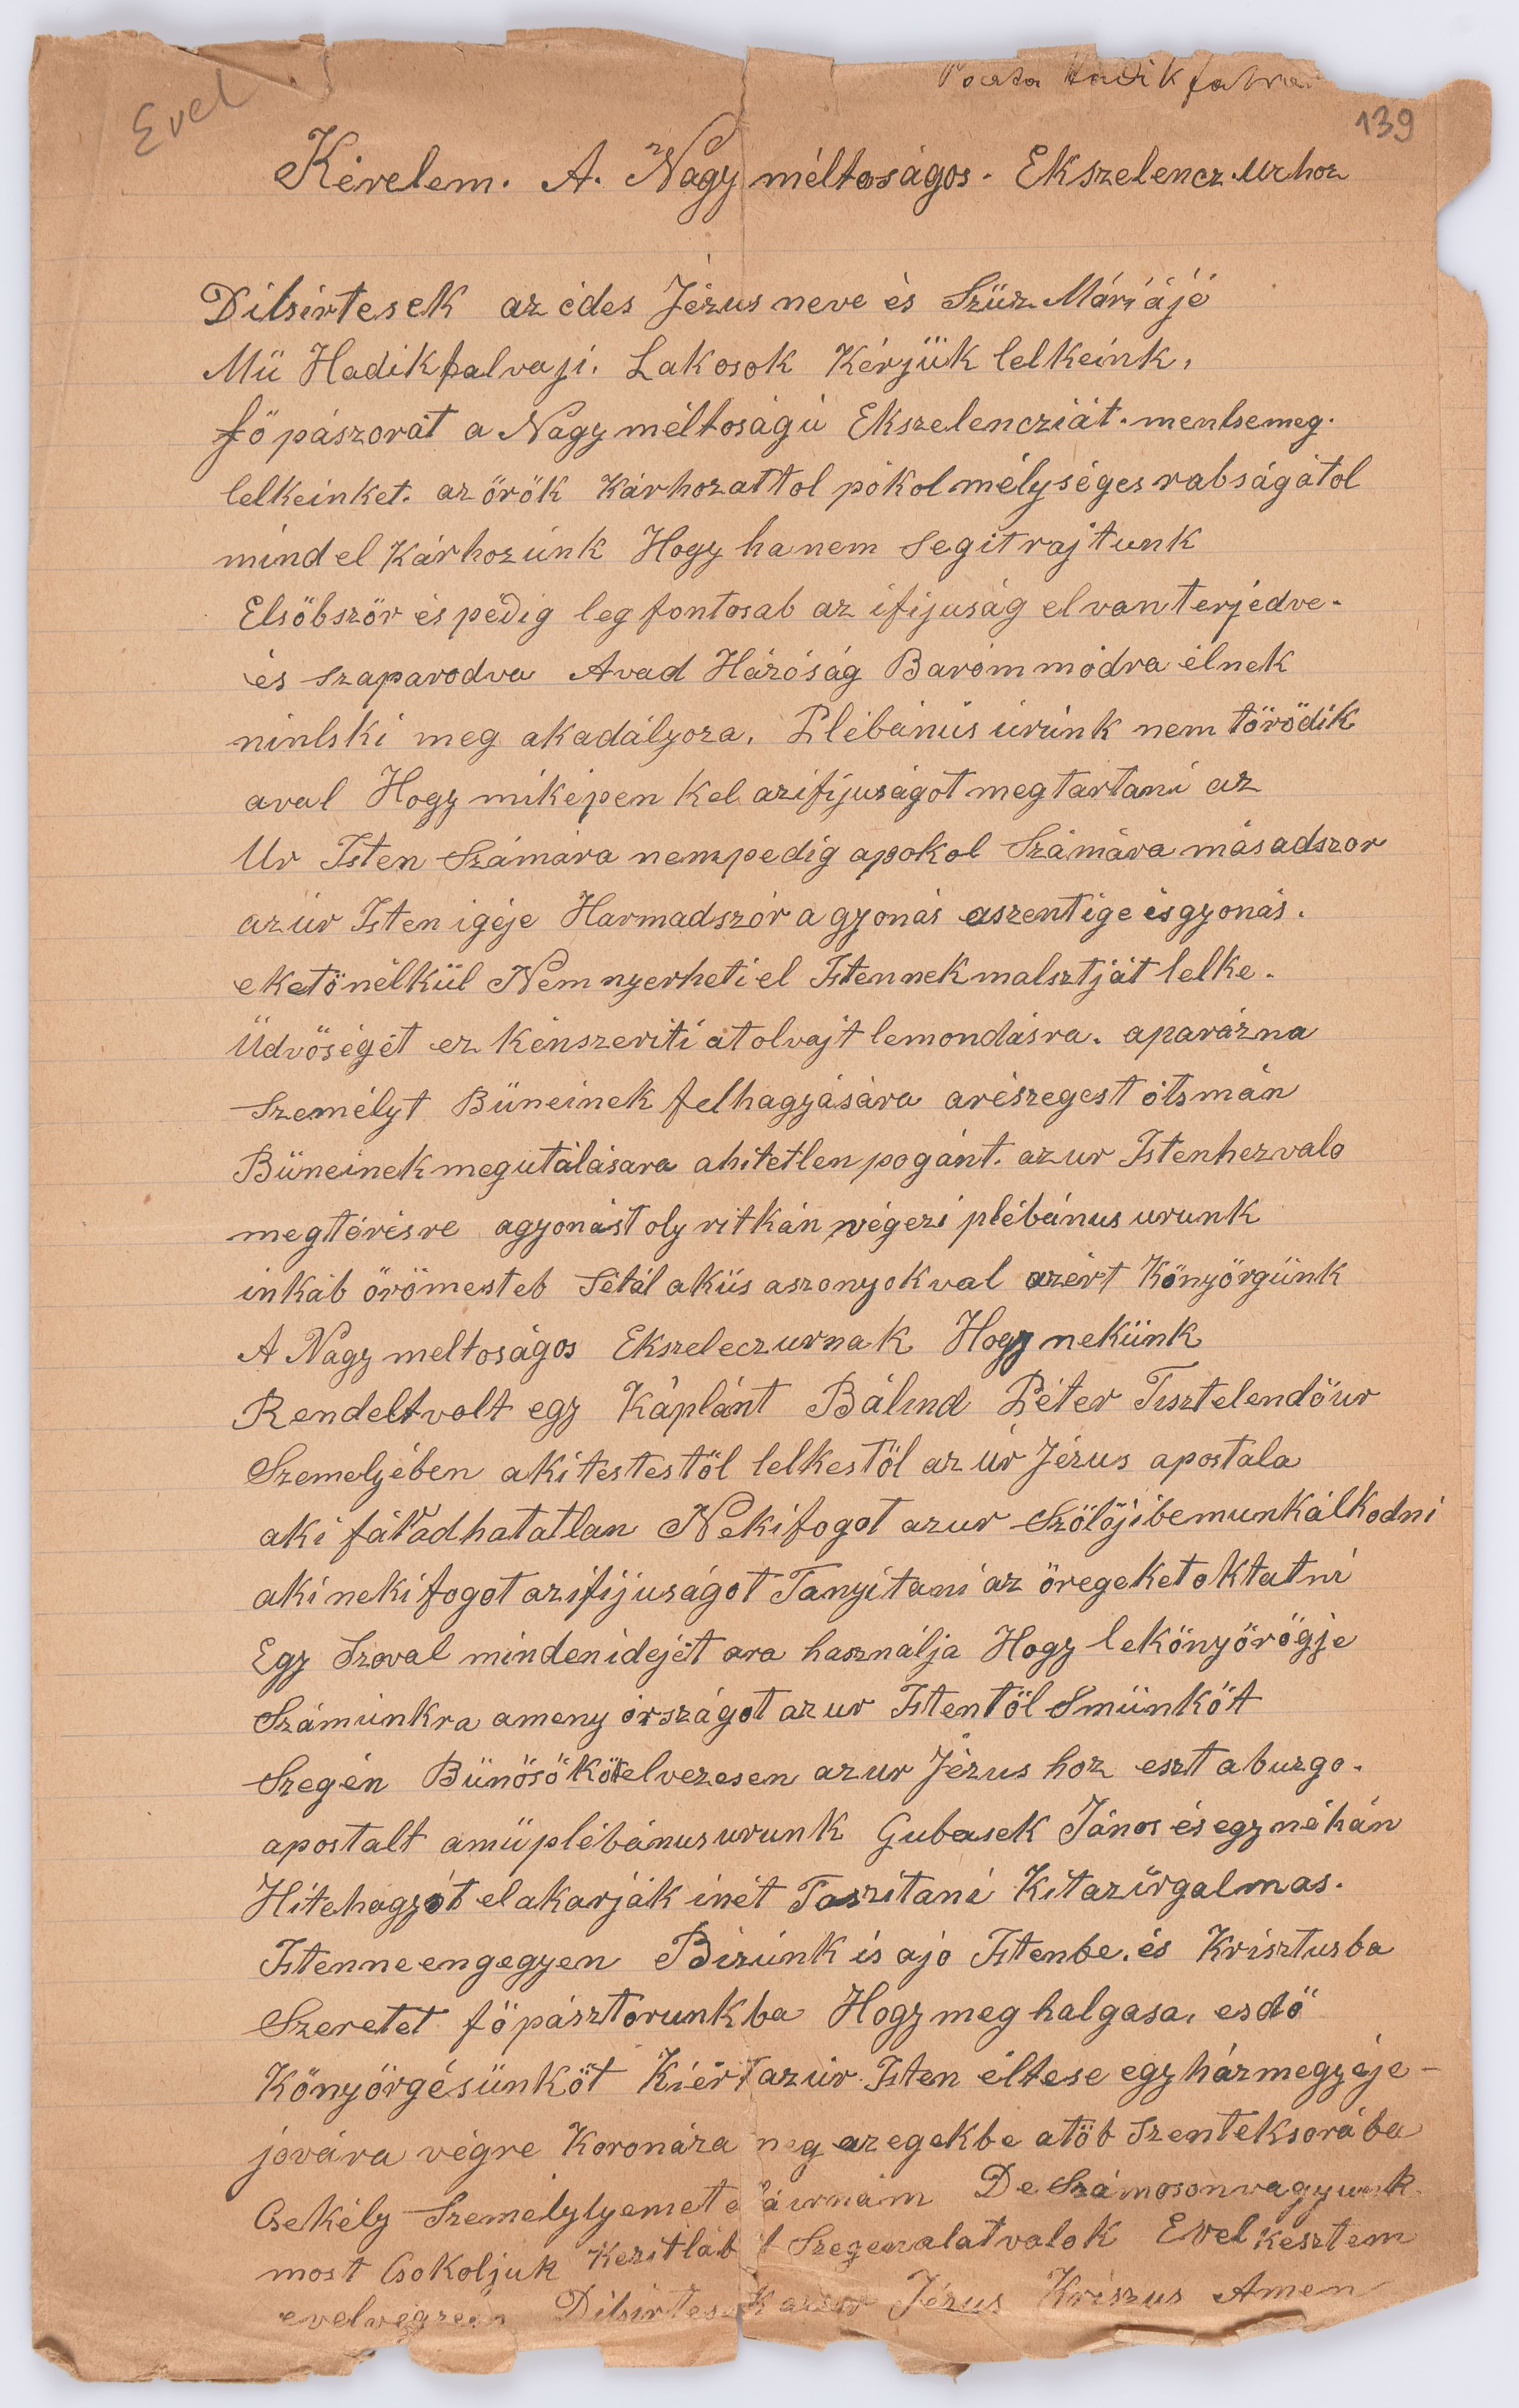 Evel
Poesta Hadikfalva
139
Kérelem. A. Nagy méltoságos. Ekszelencz Urhoz
Dilsirtesek az édes Jézus neve és Szüz Máriájé
Mü Hadikfalvaji. Lakosok Kérjük lelkeink,
föpászorát a Nagyméltoságú Ekszelencziát. mentsemeg.
lelkeinket. az örök Kárhozattol pokol mélységes rabságátol
mind el Kárhozúnk Hogy ha nem segit rajtunk
Elsöbször és pédig leg fontosab az ifijuság elvan terjédve.
és szaparodva Avad Házóság Barom módra élnek
nintski meg akadályoza. Plébánús úrúnk nem törödik
aval Hogy miképen kel azifijuságot megtartani az
Ur Isten Számára nempedig apokol Számára másadszor
azúr Isten igéje Harmadszór a gyonás aszentige isgyonás.
eketönélkül Nem nyerheti el Istennek malsztját lelke.
Üdvöségét ez kénszeriti atolvajt lemondásra. aparázna
Személyt Büneinek felhagyására arészegest otsmán
Büneinek megutálásara ahitetlen pogánt. azur Istenhezvalo
megtérésre agyonást oly ritkán végezi plébánus urunk
inkáb örömesteb Sétál aküs aszonyokval azért Könyörgünk
A Nagy meltoságos Ekszeleczurnak Hogy nekünk
Rendeltvolt egy Káplánt Bálind Péter Tisztelendöur
Szemeljében akitestestöl lelkestöl az úr Jézus apostala
aki fáradhatatlan Nekifogot azur Szölöjibemunkálkodni
aki nekifogot azifijuságot Tanyitani az öregeket oktatni
Egy Szoval mindenidejét ara használja Hogy lekönyörögje
Számúnkra ameny országot azur Istentöl Smünköt
Szegén Bünösököt elvezesen azur Jézushoz eszt abuzgo.
apostalt amüplébánusurunk Gubasek János és egynéhán
Hitehagyót elakarják inét Taszitani Kitazirgalmas.
Istenneengegyen Bizúnk is ajo Istenbe. és Krisztusba
Szeretet föpásztorunkba Hogymeg halgasa. esdö
Könyörgésünköt Kiért azúr Isten éltese egyházmegyéje-
javára végre Koronáza meg azegekbe atöb Szenteksorába
Csekély Személylyemet aláirnám De Számosonvagyunk
most Csokoljuk Kezitláb t Szegenalatvalok Evel kesztem
evelvégzem Dilsirtesék azur Jézus Kriszus Amen